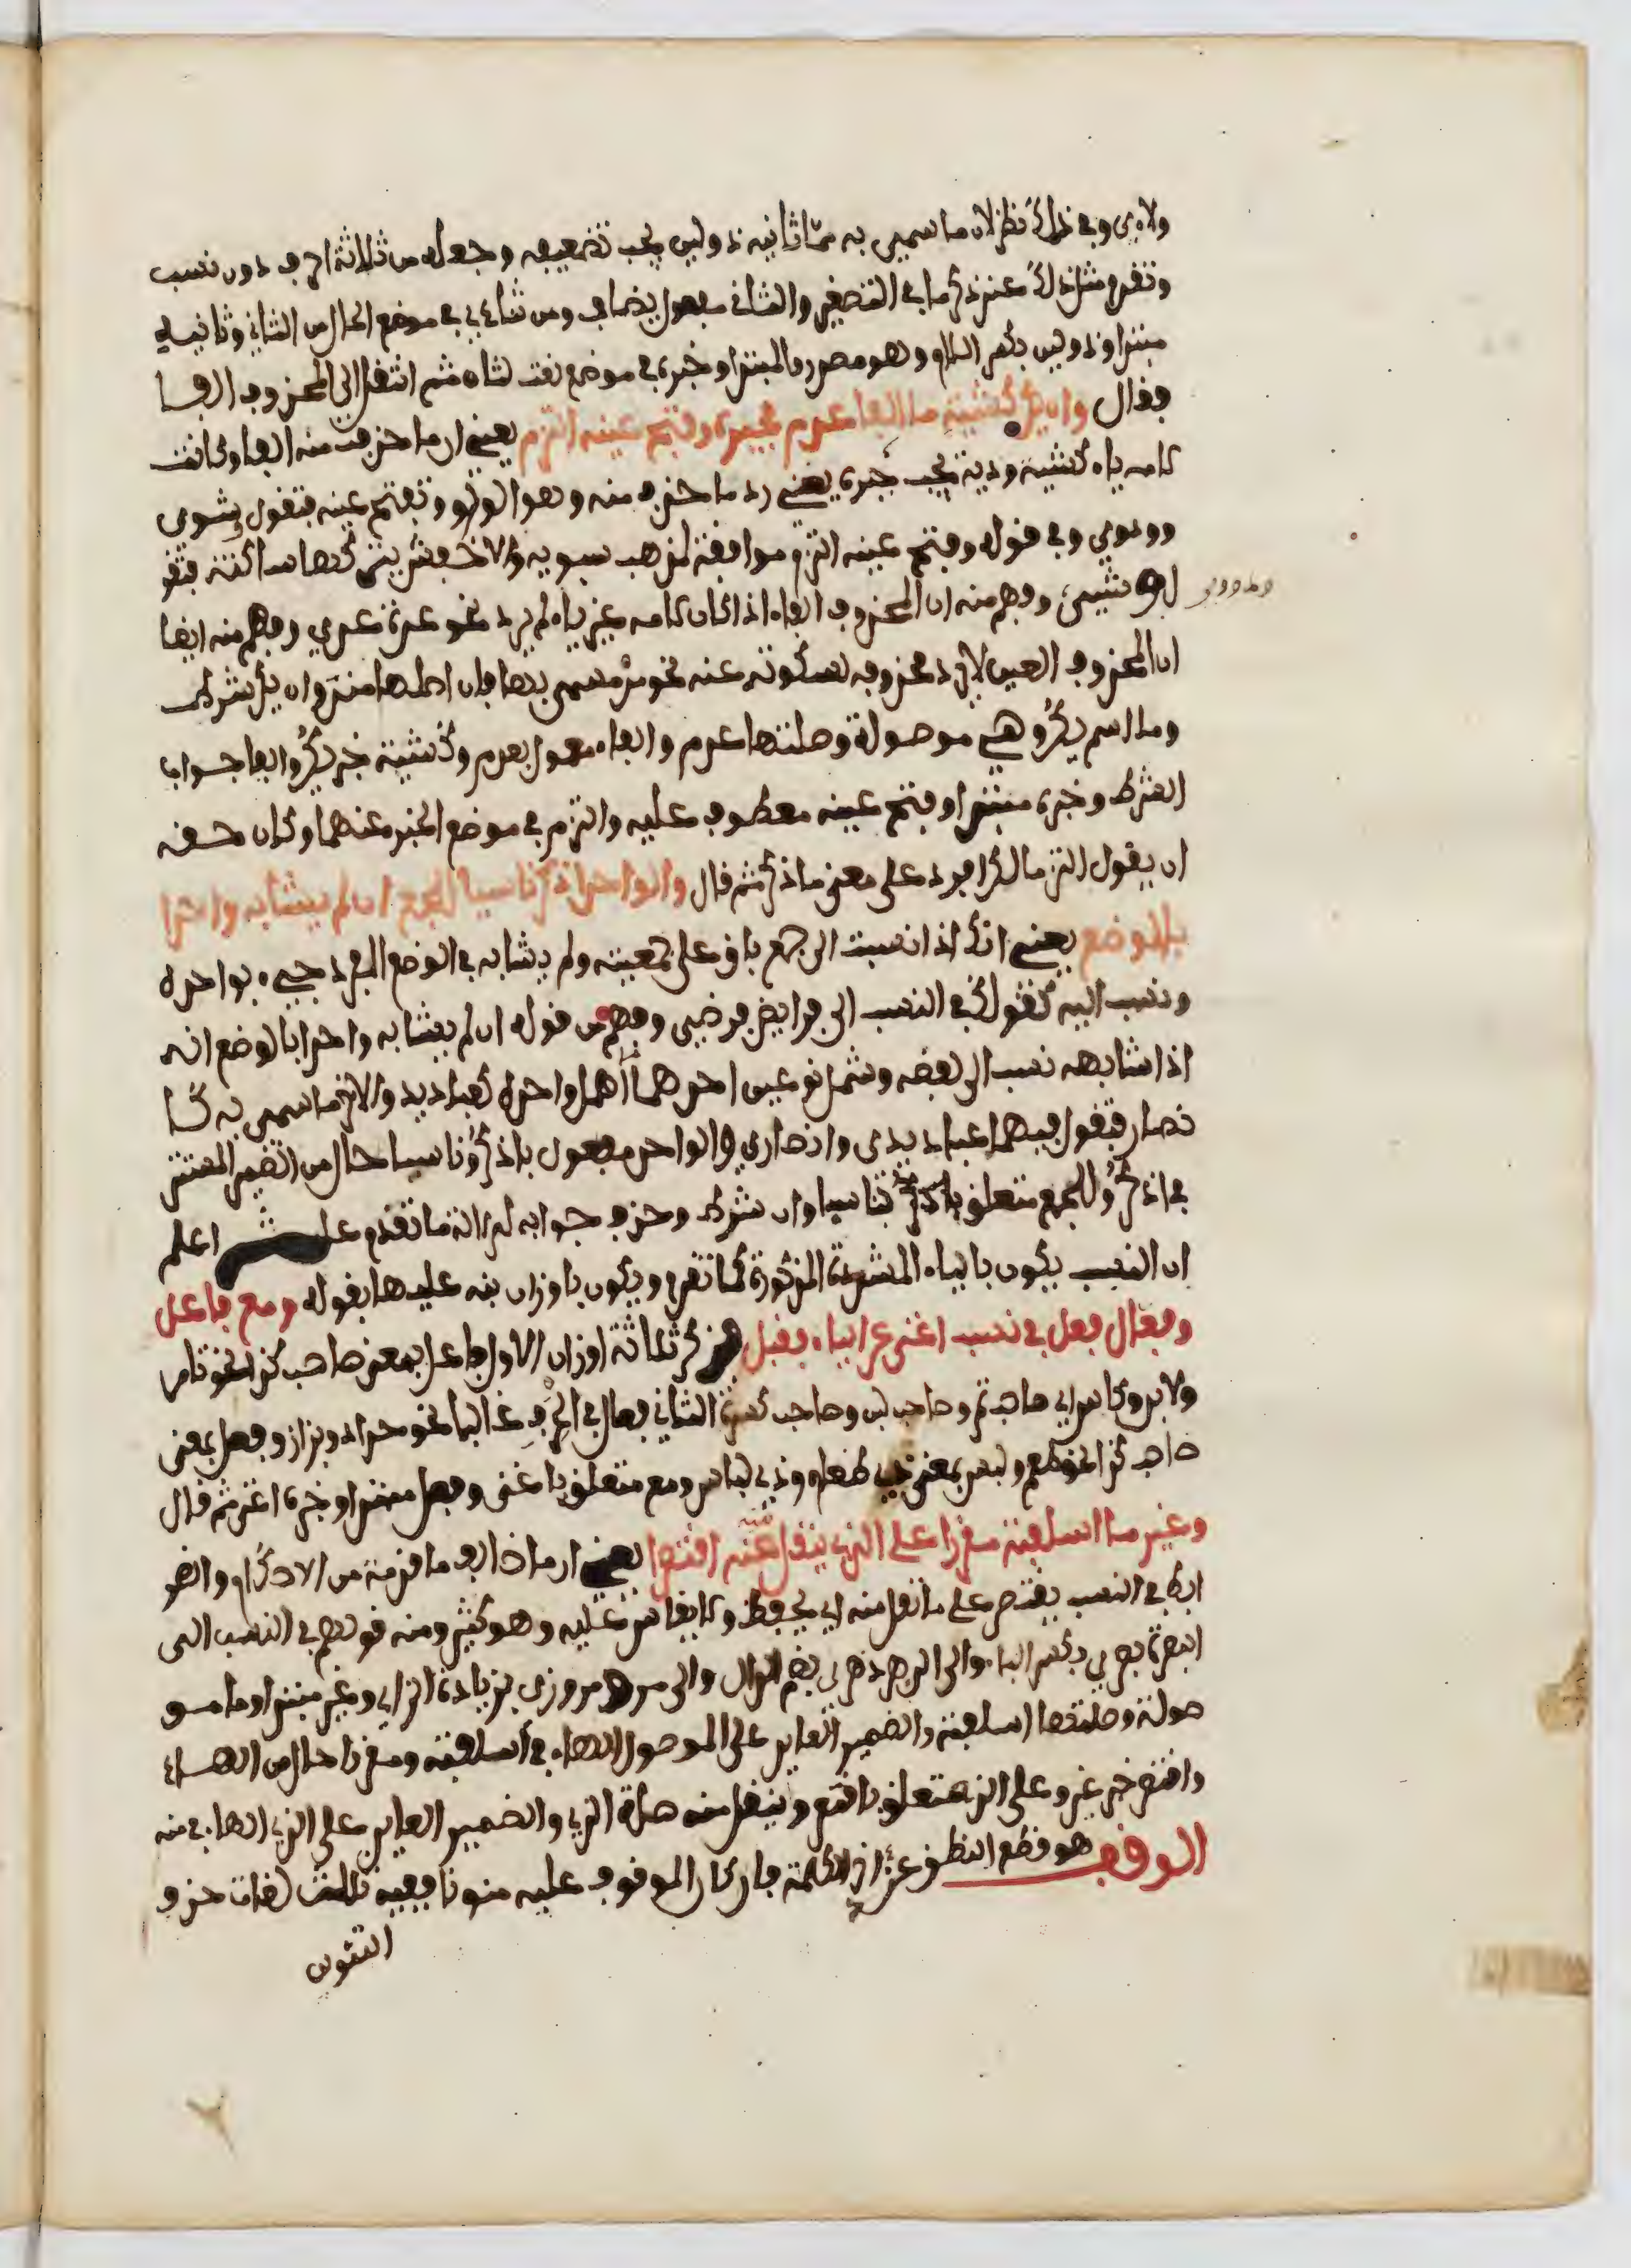 ولاءي وفي ذلك نظر لان ما سمي به مما ثانيه ذو لين يجب تضعيفه وجعله من ثلاثة احرف دون نسب
وتقدم مثل ذلك عند ذكر ما في التصغير والثاني مفعول بضاعف ومن ثناءي في موضع الحال من الثاني وثانيه
مبتدا وذو لين بكسر اللام وهو مصدر والمبتدا وخبره في موضع نعت لثناء ثم انتقل الى المحذوف الفا
فقال وان يكن كشية ما الفا عدم فجبره وفتح عينه التزم يعني ان ما حذفت منه الفا وكانت
لامه ياء كشية ودية يجب جبره يعني رد ما حذف منه وهو الواو وتفتح عينه فتقول وشوي
وودوي وفي قوله وفتح عينه التزم موافقة لمذهب سيبويه والاخفش يتركها ساكنة فتقو
ل وشيي وفهم منه ان المحذوف الفاء اذا كان لامه غير ياء لم يرد نحو عدة عدي وفهم منه ايضا
ان المحذوف العين لا يرد محذوفه لسكوته عنه نحو مذ مسمى بها فان اصلها منذ وان يكن شرط
وما اسم يكن وهي موصولة وصلتها عدم والفاء مفعول بعدم وكشية خبر يكن والفا جواب
الشرط وجبره مبتدا وفتح عينه معطوف عليه والتزم في موضع الخبر عنهما وكان حقه
ان يقول التزما لكن افرد على معنى ما ذكر ثم قال والواحد اذكر ناسبا للجمع ان لم يشابه واحدا
بالوضع يعني انك اذا نسبت الى جمع باق على جمعيته ولم يشابه في الوضع المفرد جيء بواحده
ونسب اليه كقولك في النسب الى فرايض فرضي وفهم من قوله ان لم يشابه واحدا بالوضع انه
اذا شابهه نسب الى لفظه وشمل نوعين احدهما ما اهمل واحده كعباديد والاخر ما سمي به كا
نصار فتقول فيهما عباديدي وانصاري والواحد مفعول باذكر وناسبا حال من الضمير المستتر
في اذكر وللجمع متعلق بناسبا وان شرط وحذف جوابه لدلالة ما تقدم عليه ثم اعلم
ان النسب يكون بالياء المشددة المذكورة كما تقدم ويكون باوزان نبه عليها بقوله ومع فاعل
وفعال فعل في نسب اغنى عن اليا فقبل فذكر ثلاثة اوزان الاول فاعل بمعنى صاحب كذا نحو تامر
ولابن وكاس اي صاحب تمر وصاحب لبن وصاحب كسوة الثاني فعال في الحرف غالبا نحو حداد وبزاز وفعل بمعنى
صاحب كذا نحو طعم ولبس بمعنى ذي طعام وذي لباس ومع متعلق باغنى وفعل مبتدا وخبره اغنى ثم قال
وغير ما اسلفته مقررا على الذي ينقل منه اقتصرا يعني ان ما خالف ما قدمته من الاحكام والضو
ابط في النسب يقتصر على ما نقل منه اي يحفظ ولا يقاس عليه وهو كثير ومنه قولهم في النسب الى
البصرة بصري بكسر الباء والى الدهر دهري بضم الدال والى مرو مروزي بزيادة الزاي وغير مبتدا وما مو
صولة وصلتها اسلفته والضمير العايد على الموصول الهاء في اسلفته ومقررا حال من الهاء
واقتصر خبر غير وعلى الذي متعلق باقتصر وينقل منه صلة الذي والضمير العايد على الذي الهاء في منه
الوقف هو قطع النطق عند اخر الكلمة فان كان الموقوف عليه منونا ففيه ثلاث لغات حذف
التنوين